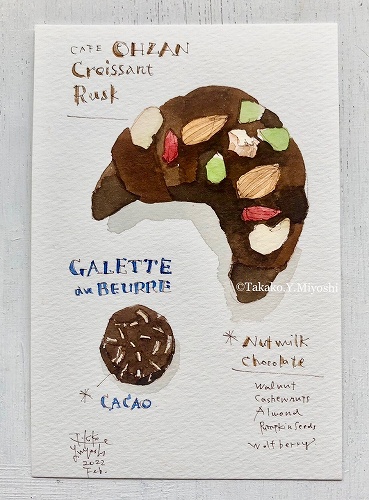 CAFE OHZAN
Croissant
Rusk
©Takako.Y.Miyoshi
GALETTE
au BEURRE
* Nutmilk
chocolate
* CACAO
walnut
Cashewnuts
Almond
Pumpkin Seeds
wolfberry
2022
Feb.